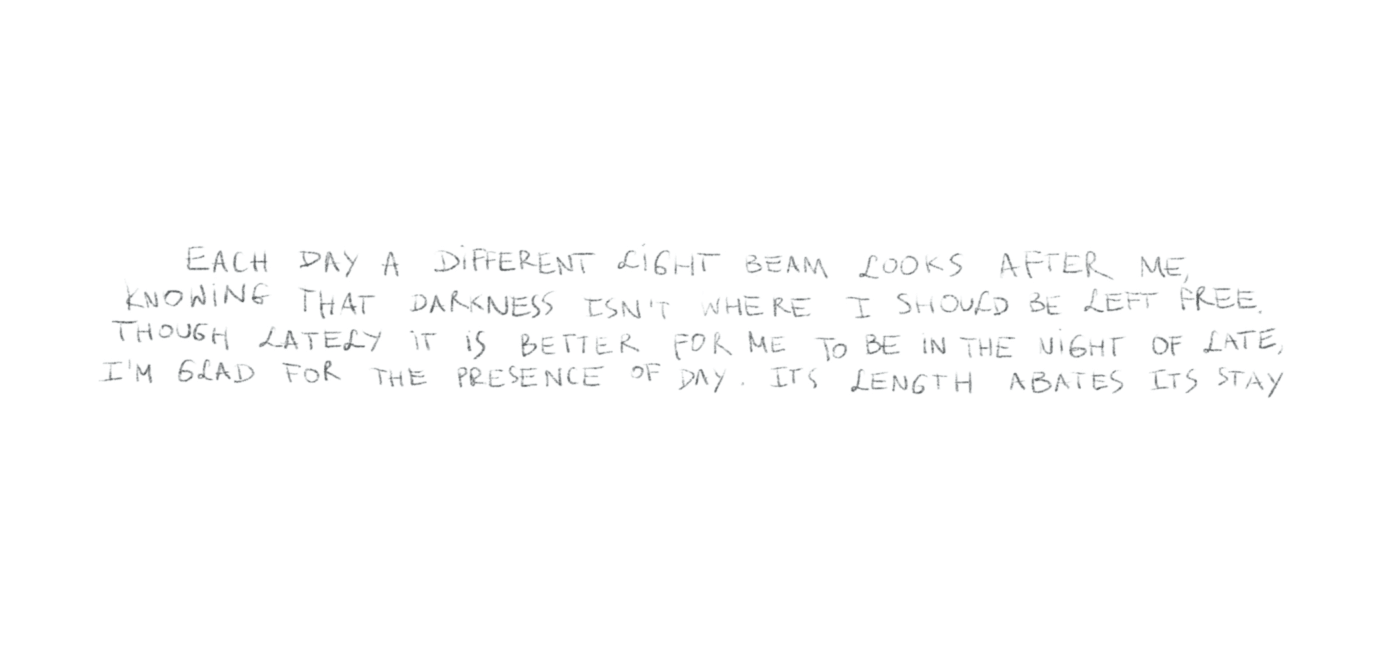 EACH DAY A DIFFERENT LIGHT BEAM LOOKS AFTER ME,
KNOWING THAT DARKNESS ISN'T WHERE I SHOULD BE LEFT FREE.
THOUGH LATELY IT IS BETTER FOR ME TO BE IN THE NIGHT OF LATE,
I'M GLAD FOR THE PRESENCE OF DAY. ITS LENGTH ABATES ITS STAY